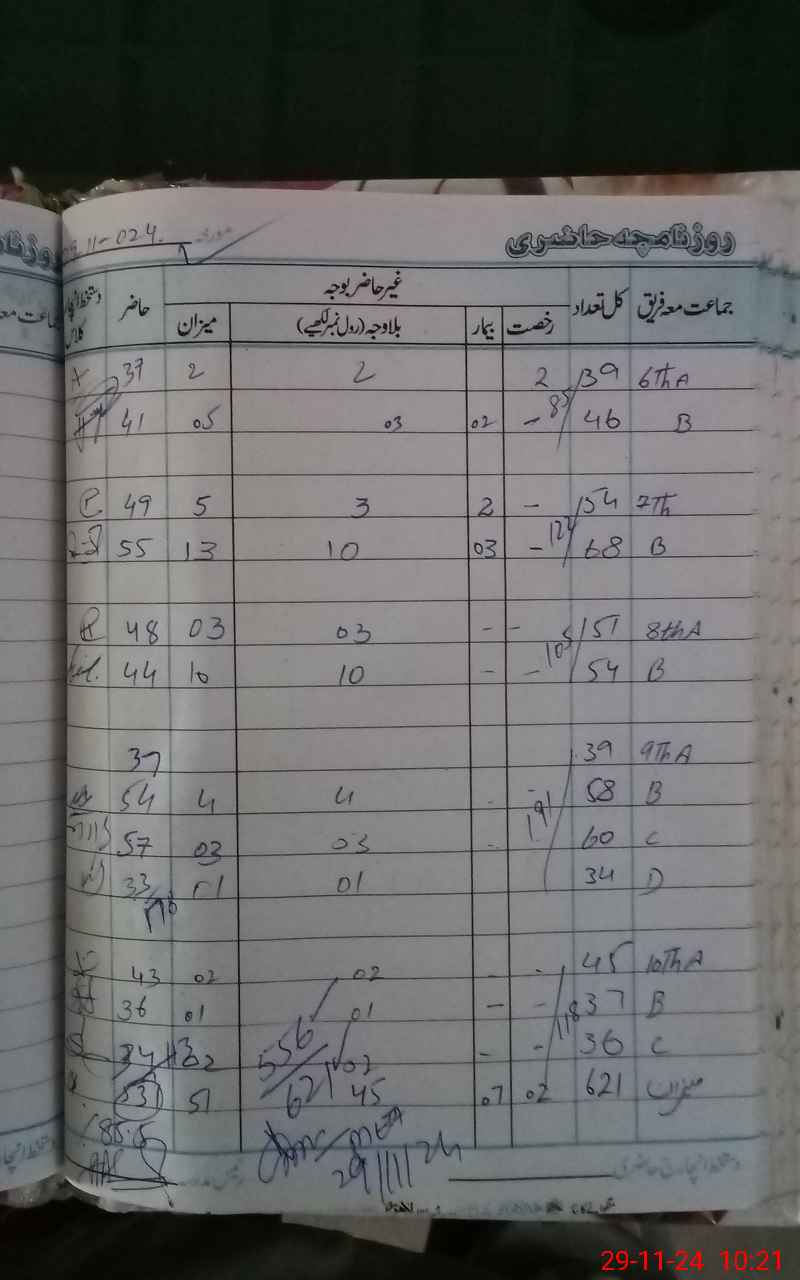 روزنامچہ حاضری
مورخہ 11-024
جماعت معہ فریق کل تعداد غیر حاضر بوجہ حاضر دستخط انچارج کلاس
رخصت بیمار بلاوجہ (رول نمبر لکھیے) میزان
6th A 39 2 2 2 37
B 46 - 02 03 05 41
85
7th 54 - 2 3 5 49
B 68 - 03 10 13 55
8th A 51 - - 03 03 48
B 54 - - 10 10 44
105
9th A 39 37
B 58 - - 4 4 54
C 60 - 03 03 57
D 34 01 01 33
191
10th A 45 - - 02 02 43
B 37 - - 01 01 36
C 36 - - 02 02 34
118
میزان 621 02 07 45 51
556
621
29/11/24
دستخط انچارج حاضری
رئیس مدرسہ
29-11-24 10:21